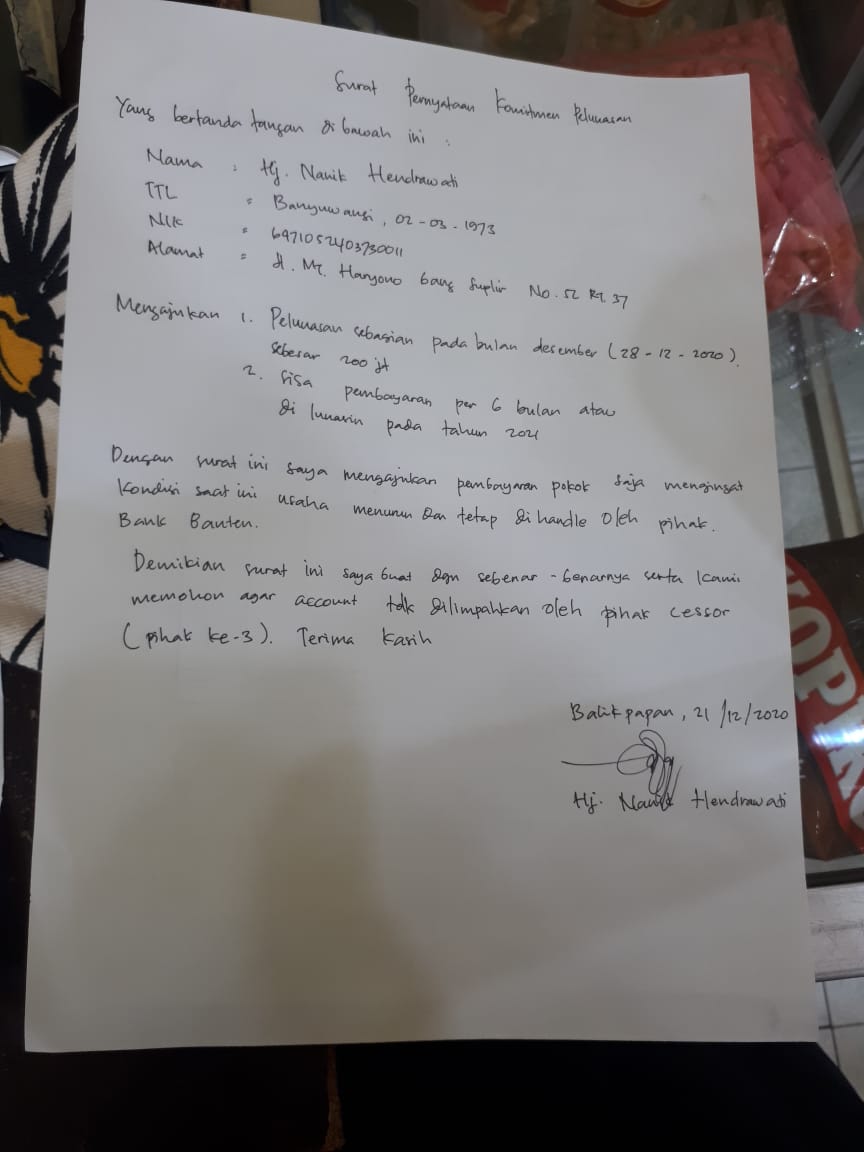 Surat Pernyataan Komitmen Pelunasan
Yang bertanda tangan di bawah ini :
Nama : Hj. Nanik Hendrawati
TTL : Banyuwangi, 02-03-1973
NIK : 6471052403730011
Alamat : Jl. MT. Haryono Gang Suplir No. 52 Rt. 37
Mengajukan 1. Pelunasan sebagian pada bulan desember (28-12-2020).
sebesar 200 jt
2. Sisa pembayaran per 6 bulan atau
di lunasin pada tahun 2021
Dengan surat ini saya mengajukan pembayaran pokok saja mengingat
kondisi saat ini usaha menurun dan tetap di handle oleh pihak.
Bank Banten.
Demikian surat ini saya buat dgn sebenar-benarnya serta kami
memohon agar account tdk dilimpahkan oleh pihak cessor
(pihak ke-3). Terima kasih
Balikpapan, 21/12/2020
Hj. Nanik Hendrawati